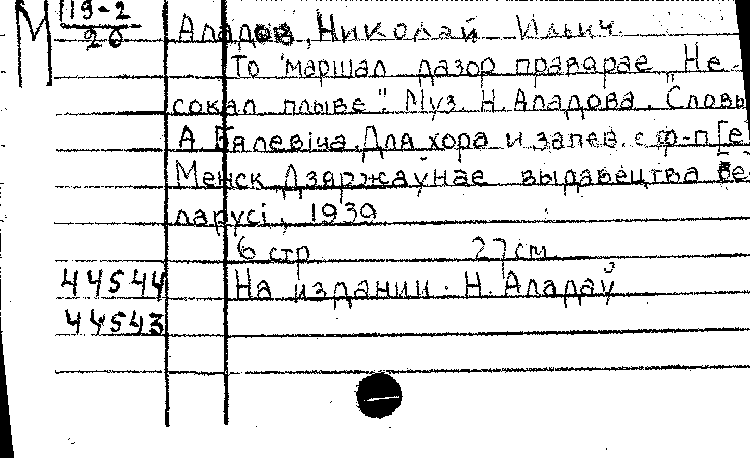 М 19-2
26
Аладов, Николай Ильич.
То "маршал дазор праварае. Не-
сокал плыве". Муз. Н. Аладова. Словы
А Бялевіча. Для хора и запев. с ф-п[е]
Менск Дзяржаўнае выдавецтва Бе-
ларусі, 1939
6 стр 27 см
44544 На издании: Н. Аладаў
44543